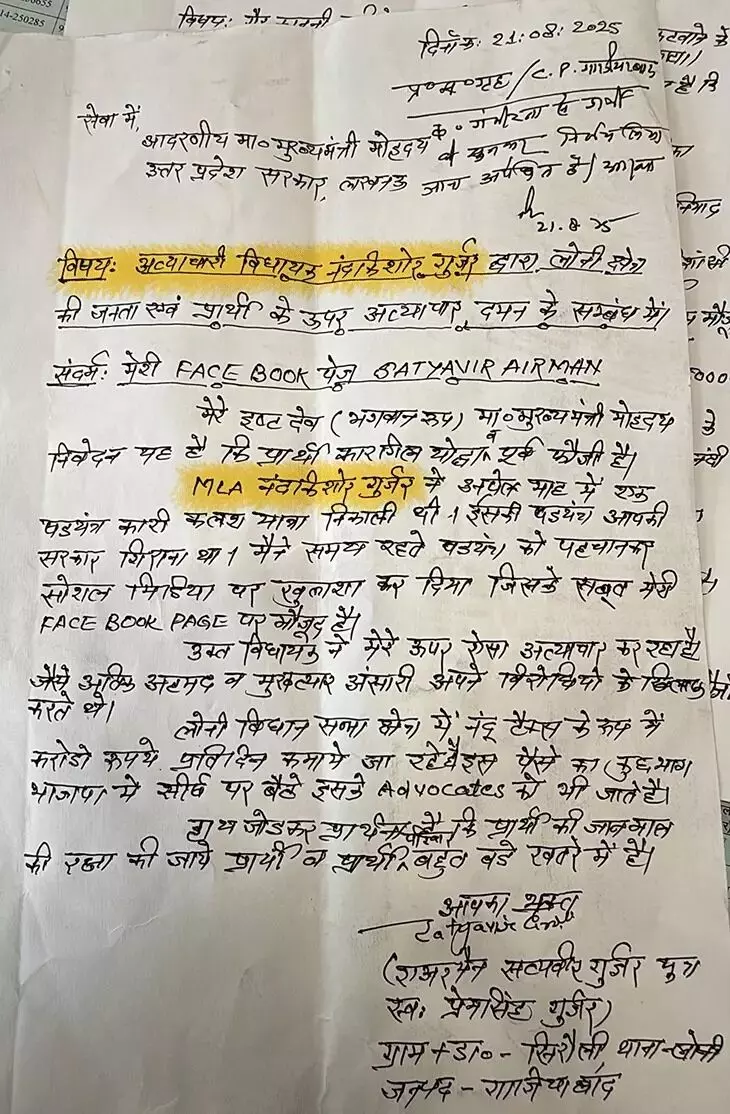 14-250285
दिनाँक: 21:08:2025
प्र०स०गृह / C.P. गाजियाबाद
सेवा में,
आदरणीय मा० मुख्यमंत्री मोहदय
उत्तर प्रदेश सरकार, लखनऊ
जाच अपेक्षित है।
21.8.25
विषय: अत्याचारी विधायक नंदकिशोर गुर्जर द्वारा लोनी क्षेत्र
की जनता एवं प्रार्थी के उपर अत्याचार, दमन के सम्बंध में।
संदर्भ: मेरी FACE BOOK पेज SATYAVIR AIRMAN
मेरे इष्ट देव (भगवान रूप) मा० मुख्यमंत्री मोहदय
निवेदन यह है कि प्रार्थी कारगिल योद्धा व पूर्व फौजी है।
MLA नंदकिशोर गुर्जर ने अप्रैल माह में एक
षडयंत्र कारी कलश यात्रा निकाली थी। इसकी षडयंत्र आपकी
सरकार गिराना था। मैने समय रहते षडयंत्र को पहचानकर
सोशल मिडिया पर खुलाशा कर दिया जिसके सबूत मेरी
FACE BOOK PAGE पर मौजूद है।
उक्त विधायक ने मेरे ऊपर ऐसा अत्याचार कर रहा है।
जैसे अतिक अहमद व मुख्त्यार अंसारी अपने विरोधियो के खिलाफ
करते थे।
लोनी विधान सभा क्षेत्र में नंदू टैक्स के रूप में
करोडो रूपये प्रतिदिन कमाये जा रहे है इस पैसे का कुछ भाग
भाजपा मे शीर्ष पर बैठे इसके Advocates को भी जाते है।
हाथ जोडकर प्रार्थना है कि प्रार्थी की जानमाल
की रक्षा की जाये प्रार्थी व प्रार्थी परिवार बहुत बडे खतरे में है।
आपका भक्त
Satyavir
(एअरमैन सत्यवीर गुर्जर पुत्र
स्व: प्रेमसिंह गुर्जर)
ग्राम + डा० - सिरौली थाना-लोनी
जनपद - गाजियाबाद